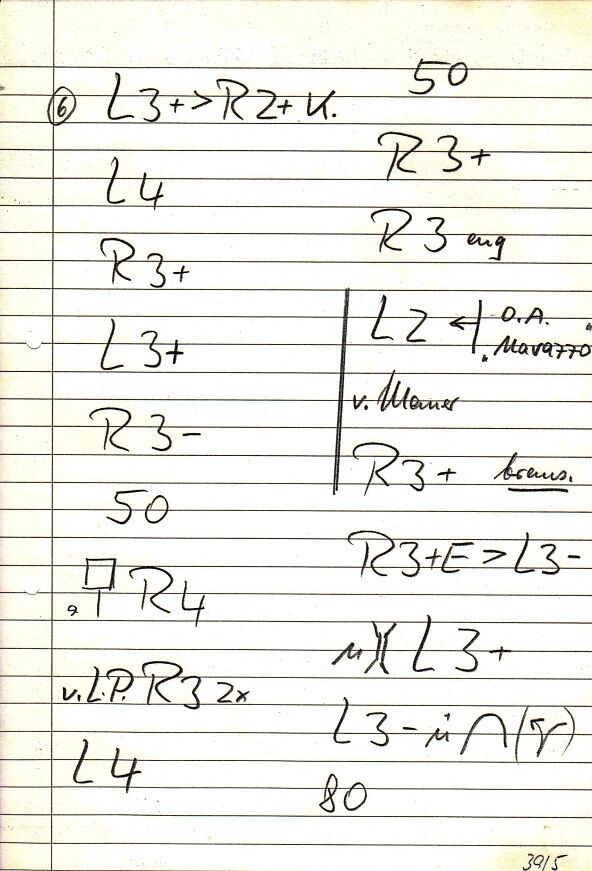 6 L3+>R2+ K.
L4
R3+
L3+
R3-
50
R4
v.L.P. R3 2x
L4
50
R3+
R3 eng
L2 ← O.A.
"Navazzo"
v. Mauer
R3+ brems.
R3+E>L3-
ü )( L3+
L3- ü ∩ (
80
39/5